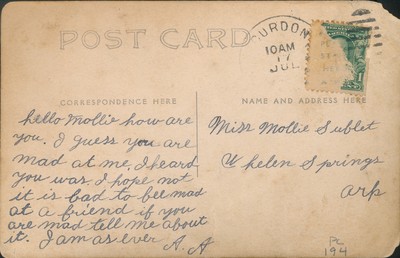 POST CARD
GURDON
10 AM
17
JUL
CORRESPONDENCE HERE
hello Mollie how are
you. I guess you are
mad at me. I heard
you was. I hope not
it is bad to bee mad
at a friend if you
are mad tell me about
it. I am as ever A. A
NAME AND ADDRESS HERE
Miss Mollie Sublet
Whelen Springs
Ark
PC
194